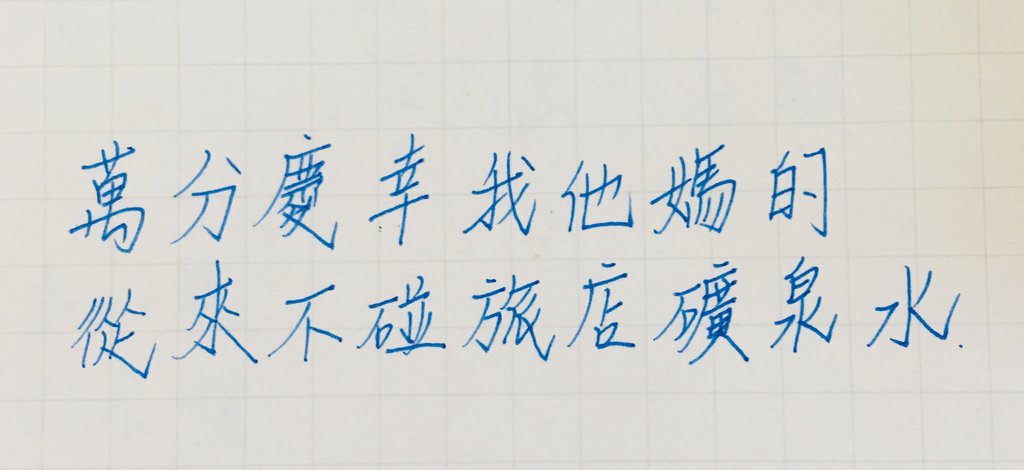 萬分慶幸我他媽的
從來不碰旅店礦泉水.